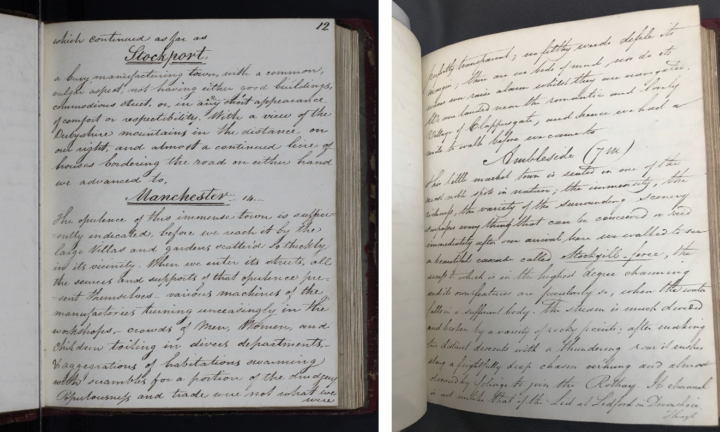 12
which continued as far as
Stockport.
a busy manufacturing town, with a common,
vulgar aspect, not having either good buildings,
commodious street, or, in any short appearance
of comfort or respectibility. With a view of the
Derbyshire mountains in the distance on
our right, and almost a continued line of
houses bordering the road on either hand
we advanced to,
Manchester
The opulence of this immense town is suffici-
ently indicated, before we reach it by the
large Villas and gardens scatter'd so thickly
in its vicinity. When we enter its streets, all
the sources and supports of that opulence pre-
-sent themselves - various machines of the
manufactories turning unceasingly in the
workshops, - crowds of Men, Women, and
Children toiling in divers departments -
Exaggerations of habitations swarming
with scrambles for a portion of the
Populousness and trade were not what we
were
perfectly transparent; no filthy weeds defile its
margin; there are no beds of mud nor do it
waves ever raise alarm whilst they are navigated.
We landed near the romantic and lonely
Village of Clappersgate, and hence we had a
mile to walk before we came to
Ambleside (7 m)
This little market town is seated in one of the
most noble spots in nature; the immensity, the
richness, the variety of the surrounding Scenery
surpass any thing that can be conceived or
immediately after our arrival here we walked to see
a beautiful called Stockgill-force, the
to which is in the highest degree charming
and its own features are peculiarly so, when the water
falls in a sufficient body. The stream is much divided
and broken by a variety of rocky points; after making
two distinct descents with a thundering roar it rushes
along a frightfully deep chasm and almost
obscured by foliage to join the Rothay. Its channel
is not unlike that of the Lid at Lidford in Devonshire